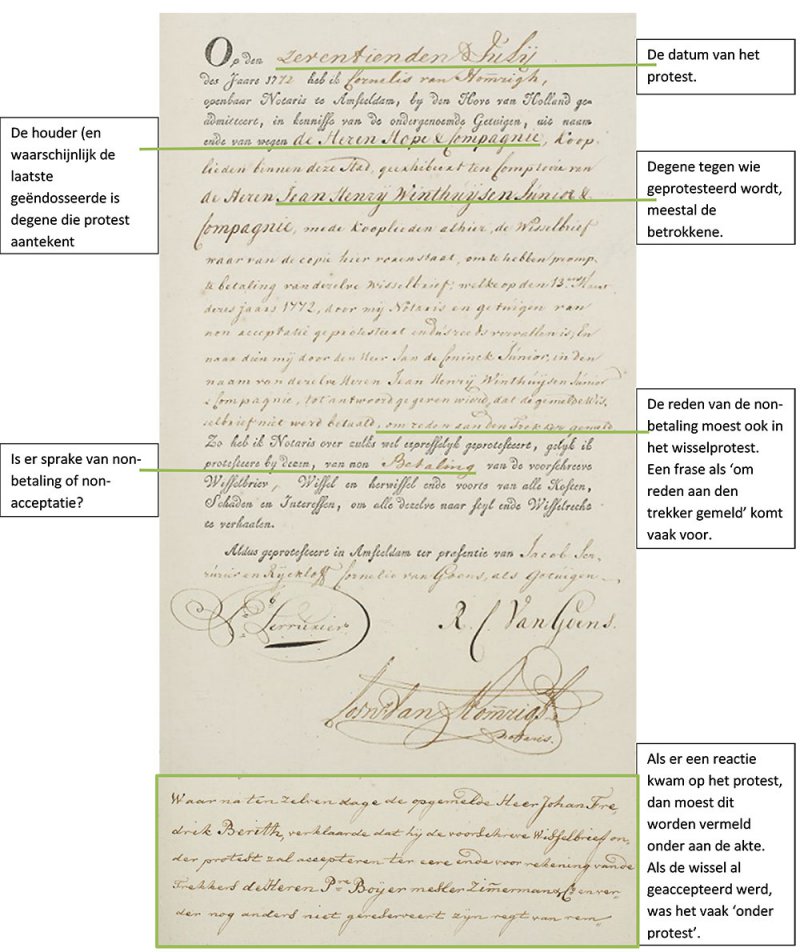 Op den zeventienden July
des Jaars 1772 heb ik Cornelis van Homrigh,
openbaar Notaris te Amsteldam, by den Hove van Holland ge-
admitteert, in kennisse van de ondergenoemde Getuigen, uit naam
ende van wegen de Heren Hope & Compagnie, Koop-
lieden binnen deze Stad, geexhibeert ten Comptoire van
de Heren Jean Henrÿ Winthuÿsen Júnior &
Compagnie, mede Kooplieden alhier, de Wisselbrief
waar van de copie hier vorenstaat, om te hebben promp-
te betaling van dezelve wisselbrief, welke op den 13.
dezes jaars 1772, door mij Notaris en getuigen van
non acceptatie geprotesteert en dus reeds vervallen is, En
naar dien mij door den Heer Jan de Coninck Júnior, in den
naam van dezelve Heren Jean Henrÿ Winthuÿsen Júnior
& Compagnie, tot antwoord gegeven wierd, dat de gemelde Wis-
selbrief niet werd betaald, om reden aan den Trekker gemeld
Zo heb ik Notaris over zulks wel expresselyk geprotesteert, gelyk ik
protesteere by deezen, van non Betaling van de voorschreeve
Wisselbriev, Wissel en herwissel ende voorts van alle Kosten,
Schaden en Interessen, om alle dezelve naar styl ende Wisselrecht
te verhaalen.
Aldus geprotesteert in Amsteldam ter presentie van Jacob Ser-
rúrier en Rÿckloff Cornelis van Goens, als Getuigen
Serrurier
R. C. Van Goens.
Corns. Van Homrigh
Notaris.
Waar na ten zelven dage de opgemelde Heer Johan Fre-
drik Berith, verklaarde dat hij de voorschreve Wisselbrief on-
der protest zal accepteren ter eere ende voor rekening van de
Trekkers de Heren Pre Boÿer Zimerman & Co en ver-
der nog anders niet gereserveert zijn regt van rem-
De datum van het
protest.
De houder (en
waarschijnlijk de
laatste
geëndosseerde is
degene die protest
aantekent
Degene tegen wie
geprotesteerd wordt,
meestal de
betrokkene.
De reden van de non-
betaling moest ook in
het wisselprotest.
Een frase als ‘om
reden aan den
trekker gemeld’ komt
vaak voor.
Is er sprake van non-
betaling of non-
acceptatie?
Als er een reactie
kwam op het protest,
dan moest dit
worden vermeld
onder aan de akte.
Als de wissel al
geaccepteerd werd,
was het vaak ‘onder
protest’.